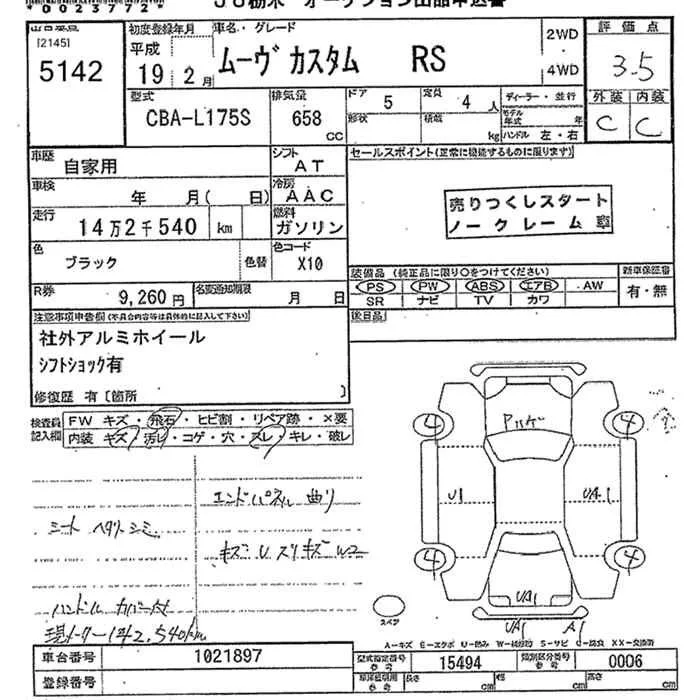 *0023772*
JU栃木 オークション出品申込書
出品番号 [2145] 5142
初度登録年月 平成 19 2月
車名・グレード ムーヴ カスタム RS
2WD
4WD
評価点 3.5
外装 内装
C C
型式 CBA-L175S
排気量 658 CC
ドア 5 定員 4 人 ディーラー・並行
形状 積載 kg モデル年式 年
ハンドル 左・右
車歴 自家用
シフト AT
セールスポイント(正常に機能するものに限ります)
車検 年 月( 日)
冷房 AAC
売りつくしスタート
ノークレーム車
走行 14万2千540 km
燃料 ガソリン
色 ブラック 色替
色コード X10
装備品 (純正品に限り○をつけてください) 新車保証書
PS PW ABS エアB AW 有・無
SR ナビ TV カワ
R券 9,260円
名変通知期限 月 日
後日品
注意事項申告欄(不具合内容等は具体的に記入して下さい)
社外アルミホイール
シフトショック有
修復歴 有〔箇所 〕
検査員記入欄
FW キズ・飛石・ヒビ割・リペア跡・×要
内装 キズ・汚レ・コゲ・穴・スレ・キレ・破レ
エンドパネル 曲り
シート ヘタリ シミ
キズ U スリキズ W2
ハンドル カバー付
現メーター142,540km
4 4
U1 UA1
4 4
UA1
UA1 A1
スペア
A=キズ E=エクボ U=凹み W=補修跡 S=サビ C=腐食 XX=交換済
車台番号 1021897
型式指定番号 参考 15494
類別区分番号 参考 0006
登録番号
車庫証明用 参考 長さ cm 幅 cm 高さ cm